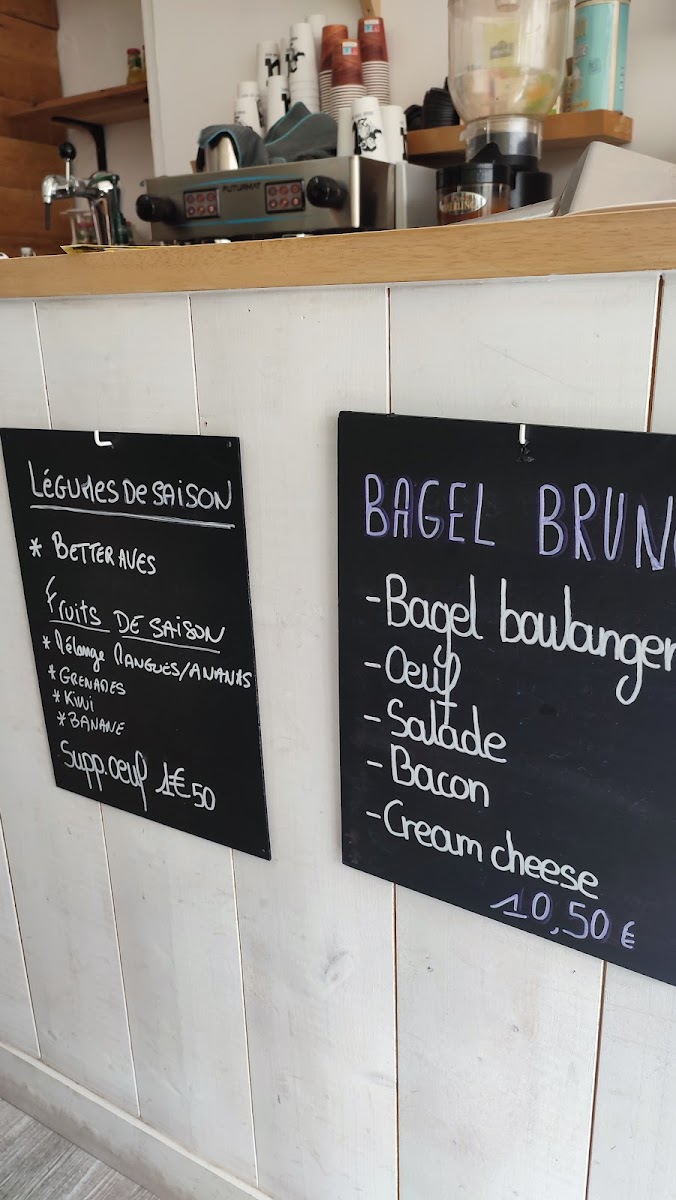 FUTURMAT
LÉGUMES DE SAISON
* BETTERAVES
FRUITS DE SAISON
* Mélange MANGUES/ANANAS
* GRENADES
* KIWI
* BANANE
Supp. œuf 1€50
BAGEL BRUN
- Bagel boulanger
- Oeuf
- Salade
- Bacon
- Cream cheese
10,50 €